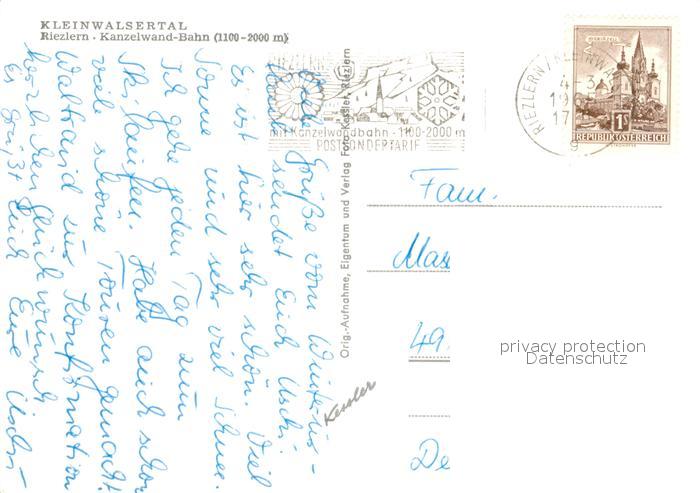 KLEINWALSERTAL
Riezlern · Kanzelwand-Bahn (1100-2000 m)
RIEZLERN
mit Kanzelwandbahn - 1100-2000 m
POSTSONDERTARIF
RIEZLERN / KLEINWA
4. 3.
19
17
9
MARIAZELL
1S
REPUBLIK ÖSTERREICH
Orig.-Aufnahme, Eigentum und Verlag Foto Kessler, Riezlern
Kessler
Grüße vom Winter-
sendet Euch Uschi.
Es ist hier sehr schön. Viel
Sonne und sehr viel Schnee.
Ich gehe jeden Tag zum
Skilaufen. Habe auch schon
viele schöne Touren gemacht.
Waltraud zur Konfirmation
herzlichen Glückwunsch
Es grüßt Euch Eure Uschi
Fam.
Mas
49
De
privacy protection
Datenschutz